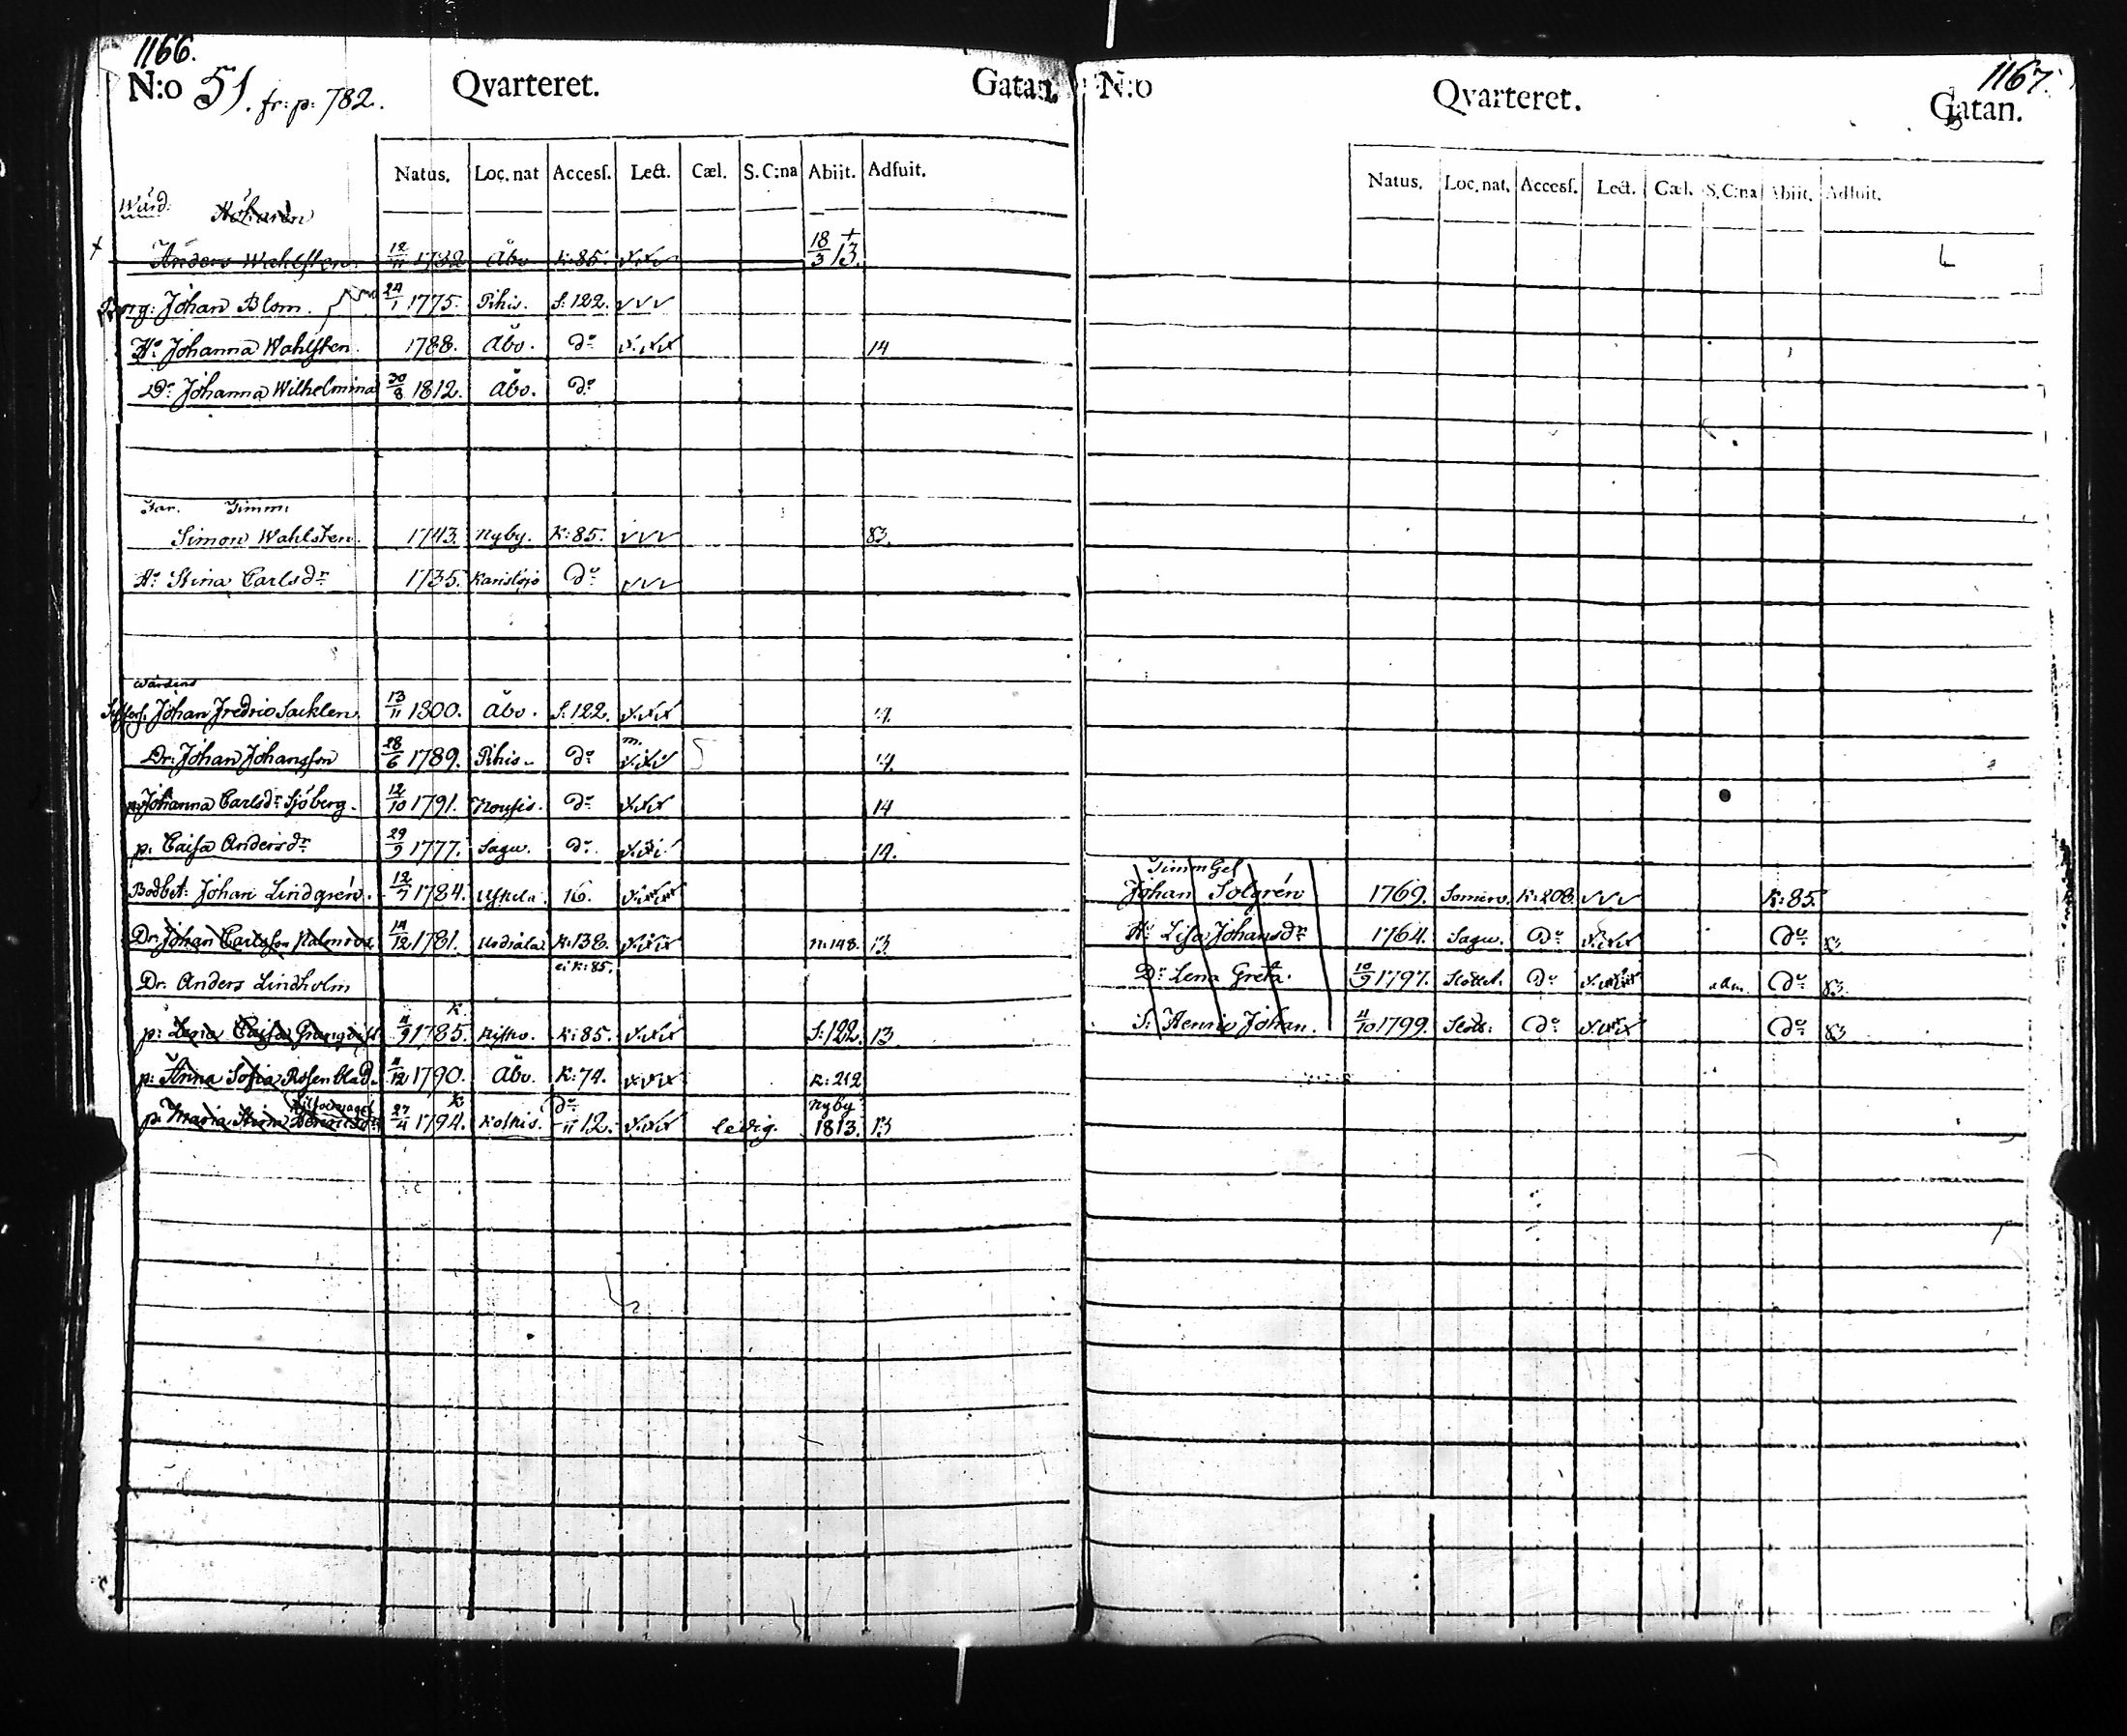 1166.
N:o 51. fr: p: 782. Qvarteret. Gatan.
Natus. Loc. nat Accesſ. Lect. Cæl. S. C:na Abiit. Adfuit.
Wärd:
Anders Wahlsten 12/11 1732 Åbo K:85. 18/3 13. +
Borg: Johan Blom. 24/1 1775. Pikis. S:122.
H:o Johanna Wahlsten. 1788. Åbo. D:o 14
D:r Johanna Wilhelmina 30/8 1812. Åbo. D:o
Timm:
Simon Wahlsten. 1743. Nyby. K:85. 83.
H:o Stina Carlsd:r 1735. Karislojo D:o
Wärdens
Johan Fredric Sacklen. 13/11 1800. Åbo. S:122.
Dr: Johan Johansson 28/6 1789. Pikis. D:o m.
p: Johanna Carlsd:r Sjöberg. 12/10 1791. Nousis. D:o 14
p: Caisa Andersd:r 29/9 1777. Sagu. D:o 14.
Bodbet: Johan Lindgrén. 12/7 1784. Uskela 16.
Dr: Johan Carlsson 14/12 1781. K:138. N:148. 13
Dr. Anders Lindholm ei K:85.
p: Lena Caisa Granqvist K. 4/9 1785. Kisko. K:85. S:122. 13
p: Anna Sofia Rosenblad. 4/12 1790. Åbo. K:74. K:212
p: Maria Stina 27/4 1794. D:o /11 12. ledig. Nyby 1813. 13
1167.
N:o Qvarteret. Gatan.
Natus. Loc. nat. Accesſ. Lect. Cæl. S. C:na Abiit. Adfuit.
Timm Gel
Johan Solgrén 1769. Somero. K:208. K:85.
H:o Lisa Johansd:r 1764. Sagu. D:o D:o 83
D:r Lena Greta. 10/9 1797. Slottet. D:o adm. D:o 83.
S: Henric Johan. 11/10 1799. Slott: D:o D:o 83